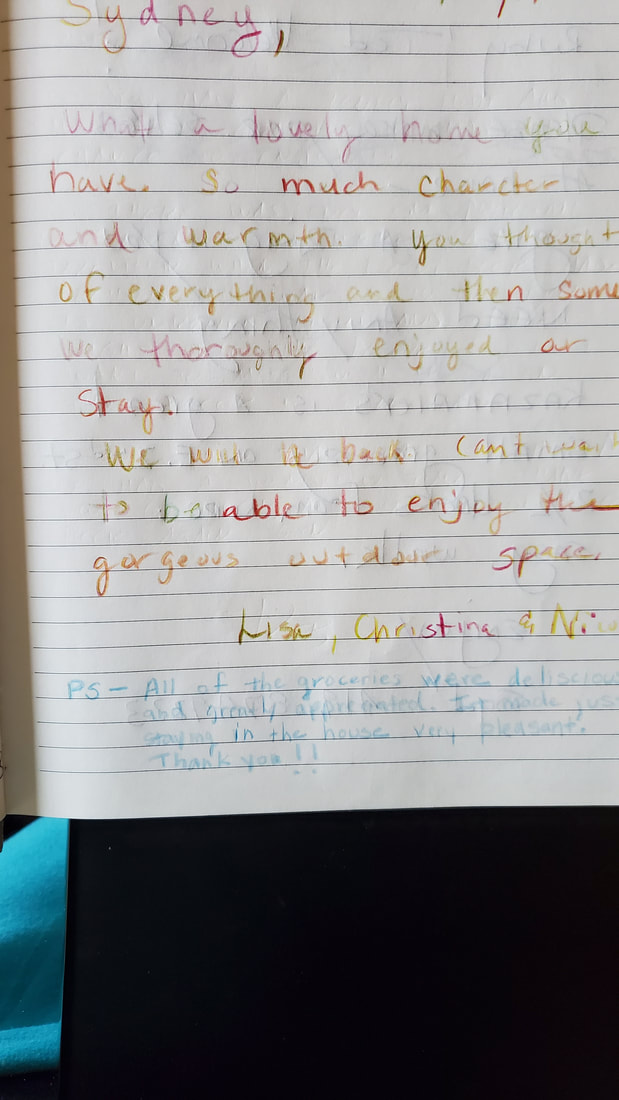 Sydney,
What a lovely home you
have. So much charcter
and warmth. You thought
of everything and then some
We thoroughly enjoyed or
stay.
We will be back. Cant wait
to be able to enjoy the
gorgeous outdour space.
Lisa, Christina & Nic
PS - All of the groceries were deliscious
and greatly appreciated. made jus
staying in the house very pleasant.
Thank you!!